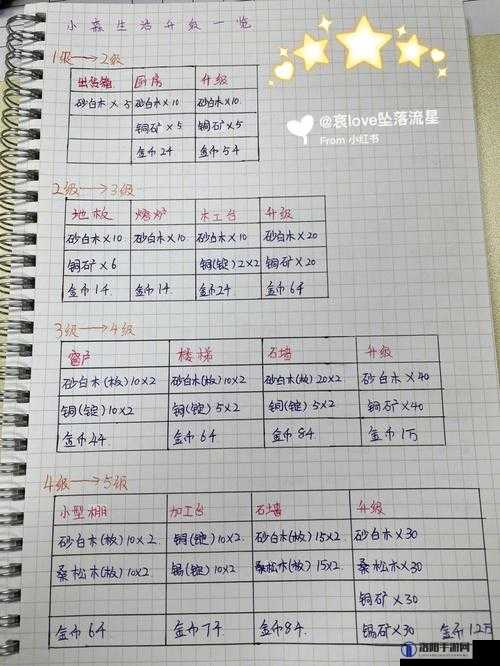 小森生活升级一览
1级→2级
出货箱 厨房 升级
砂白木×5 砂白木×10 砂白木×10
铜矿×5 铜矿×5
金币24 金币54
@哀love坠落流星
From 小红书
2级→3级
地板 烤炉 木工台 升级
砂白木×10 砂白木×10 砂白木×10 砂白木×20
铜矿×6 铜(锭)2×2 铜矿×20
金币14 金币14 金币24 金币64
3级→4级
窗户 楼梯 石墙 升级
砂白木(板)10×2 砂白木(板)10×2 砂白木(板)20×2 砂白木×40
铜(锭)10×2 铜(锭)5×2 铜(锭)5×2 铜矿×40
金币44 金币64 金币84 金币1万
4级→5级
小型棚 加工台 石墙 升级
砂白木(板)10×2 铜(锭)10×2 砂白木(板)15×2 砂白木×30
桑松木(板)10×2 锡(锭)10×2 桑松木(板)15×2 桑松木×30
铜矿×30
金币64 金币74 金币84 锡矿×30 金币12万
洛阳手游网